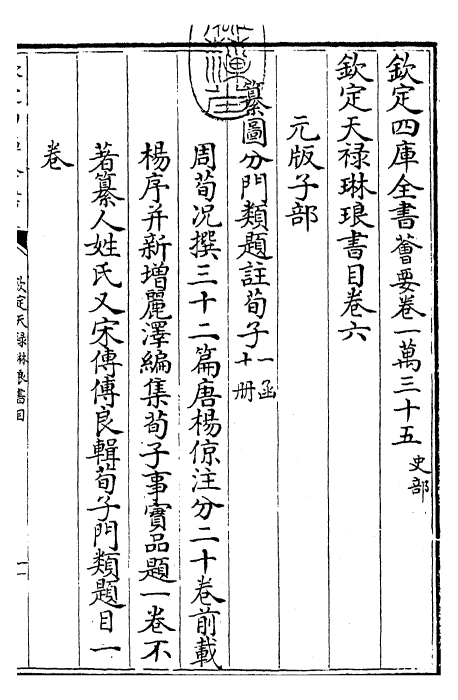 欽定四庫全書薈要卷一萬三十五 史部
欽定天祿琳琅書目卷六
元版子部
纂圖分門類題註荀子 一函十册
周荀况撰三十二篇唐楊倞注分二十卷前載
楊序并新增麗澤編集荀子事實品題一卷不
著纂人姓氏又宋傅傅良輯荀子門類題目一
卷
欽定天祿琳琅書目